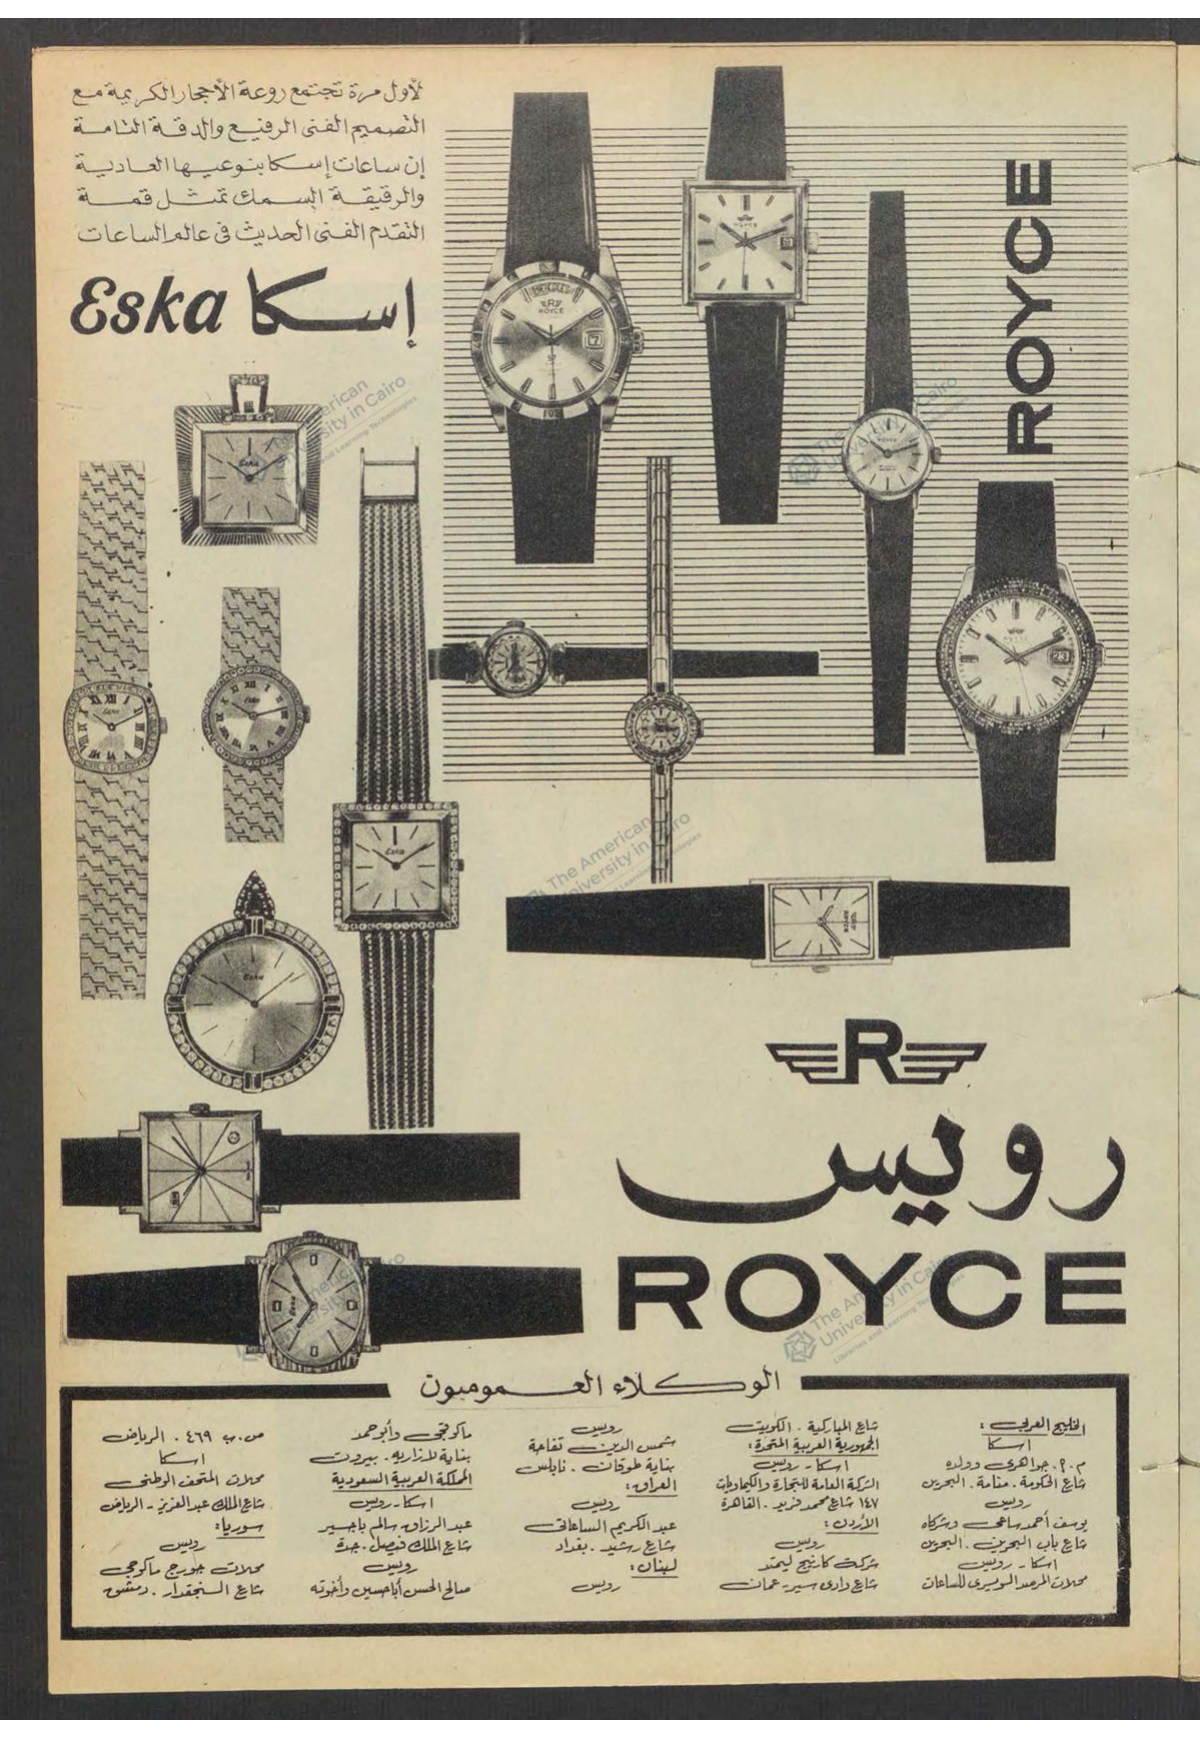 لأول مرة تجتمع روعة الأحجار الكريمة مع
التصميم الفنى الرفيع والدقة التامة
إن ساعات إسكا بنوعيها العادية
والرقيقة السمك تمثل قمة
التقدم الفنى الحديث فى عالم الساعات
Eska إسكا
ROYCE
R
رويس
ROYCE
الوكلاء العموميون
الخليج العربى :
اسكا
م.م. جواهرى وولده
شارع الحكومة . منامة . البحرين
رويس
يوسف أحمد ساعى وشركاه
شارع باب البحرين . البحرين
اسكا - رويس
محلات المرصد السويسرى للساعات
شارع المباركية . الكويت
الجمهورية العربية المتحدة :
اسكا - رويس
الشركة العامة للتجارة والكيماويات
١٤٧ شارع محمد فريد . القاهرة
الأردن :
رويس
شركة كارتيج ليمتد
شارع وادى سير - عمان
رويس
شمس الدين تفاحة
بناية طوقان . نابلس
العراق :
رويس
عبد الكريم الساعاتى
شارع رشيد . بغداد
لبنان :
رويس
ماكوفجى وأبو حمد
بناية لازاريه . بيروت
المملكة العربية السعودية
اسكا - رويس
عبد الرزاق سالم باجسير
شارع الملك فيصل . جدة
رويس
صالح الحسن أباحسين وأخوته
ص . ب ٤٦٩ . الرياض
اسكا
محلات المتحف الوطنى
شارع الملك عبد العزيز - الرياض
سوريا :
رويس
محلات جورج ماكوجى
شارع السنجقدار . دمشق
The American
University in Cairo
Libraries and Learning Technologies